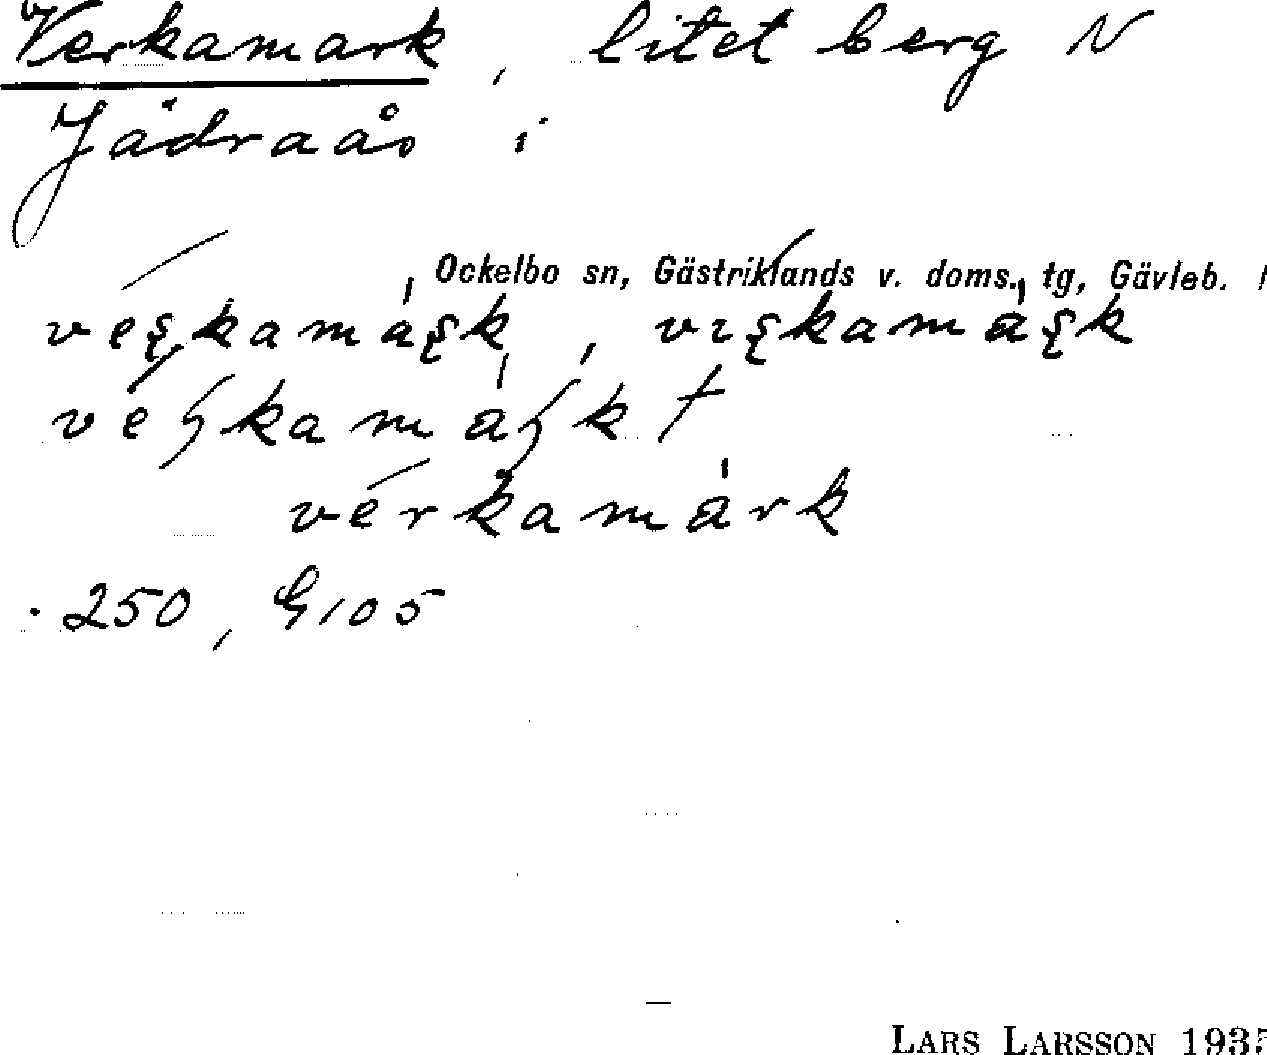 Verkamark, litet berg N
Jädraås i
Ockelbo sn, Gästriklands v. doms. tg, Gävleb. l
verkamark, vırkamark
verkamark †
verkamark
. 250, G 105
LARS LARSSON 1935